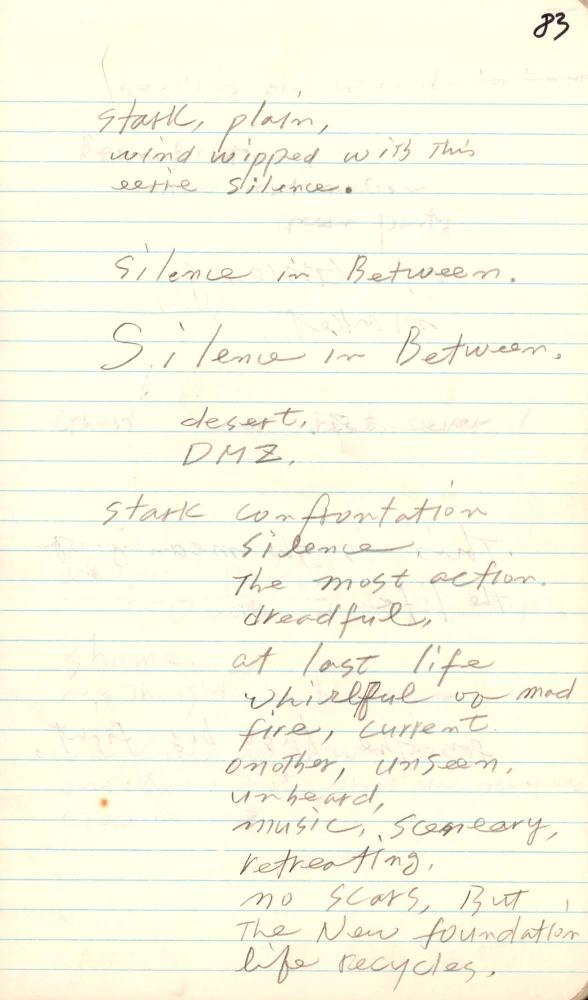 83
stark, plain,
wind wipped with this
eerie silence.
Silence in Between.
Silence in Between.
desert.
DMZ.
stark confrontation
silence.
The most action.
dreadful,
at last life
whirlful of mad
fire, current.
another, unseen,
unheard,
music, sceneary,
retreating.
no scars, But
The New foundation
life recycles.